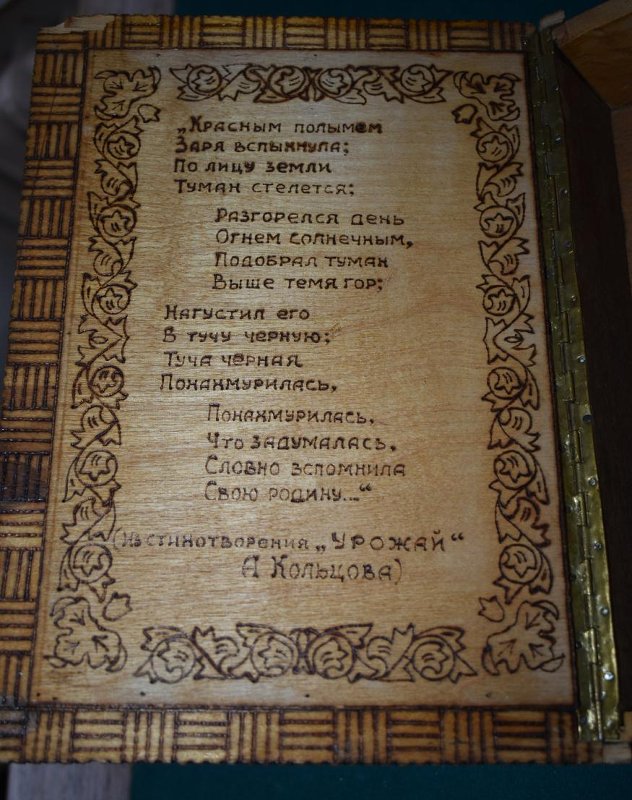 „Красным полымем
Заря вспыхнула;
По лицу земли
Туман стелется;
Разгорелся день
Огнем солнечным,
Подобрал туман
Выше темя гор;
Нагустил его
В тучу черную;
Туча черная
Понахмурилась,
Понахмурилась,
Что задумалась,
Словно вспомнила
Свою родину..."
(Из стихотворения „Урожай"
А Кольцова)